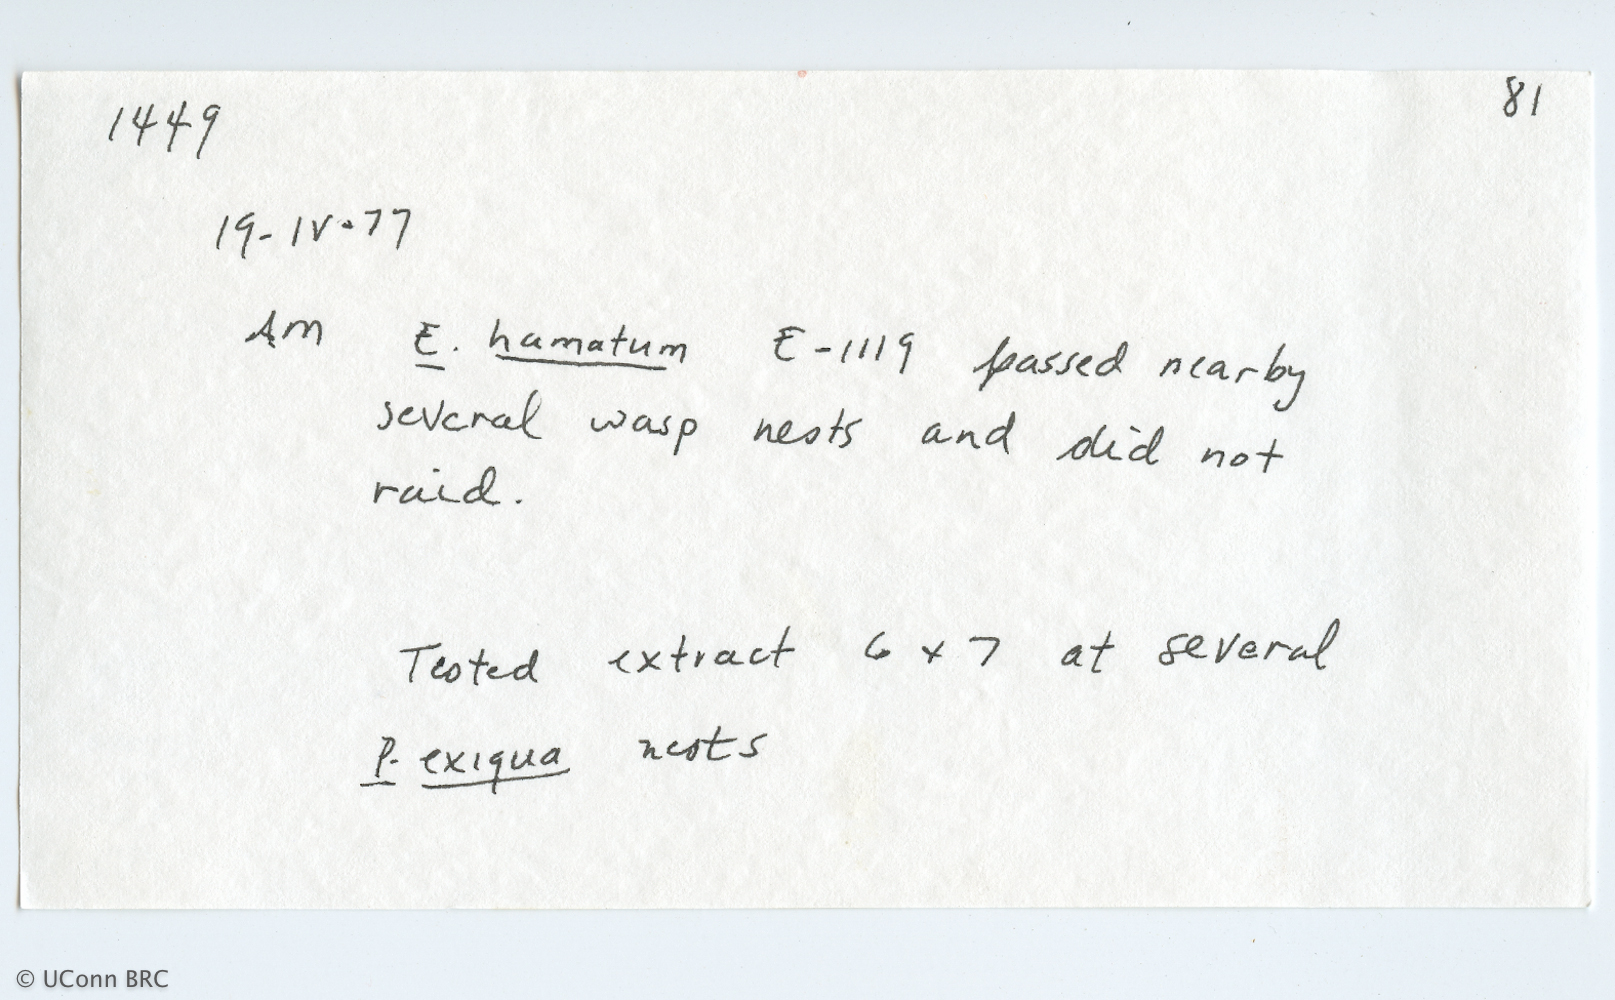 1449
81
19-IV-77
AM E. hamatum E-1119 passed nearby
several wasp nests and did not
raid.
Tested extract 6 + 7 at several
P. exiqua nests
© UConn BRC